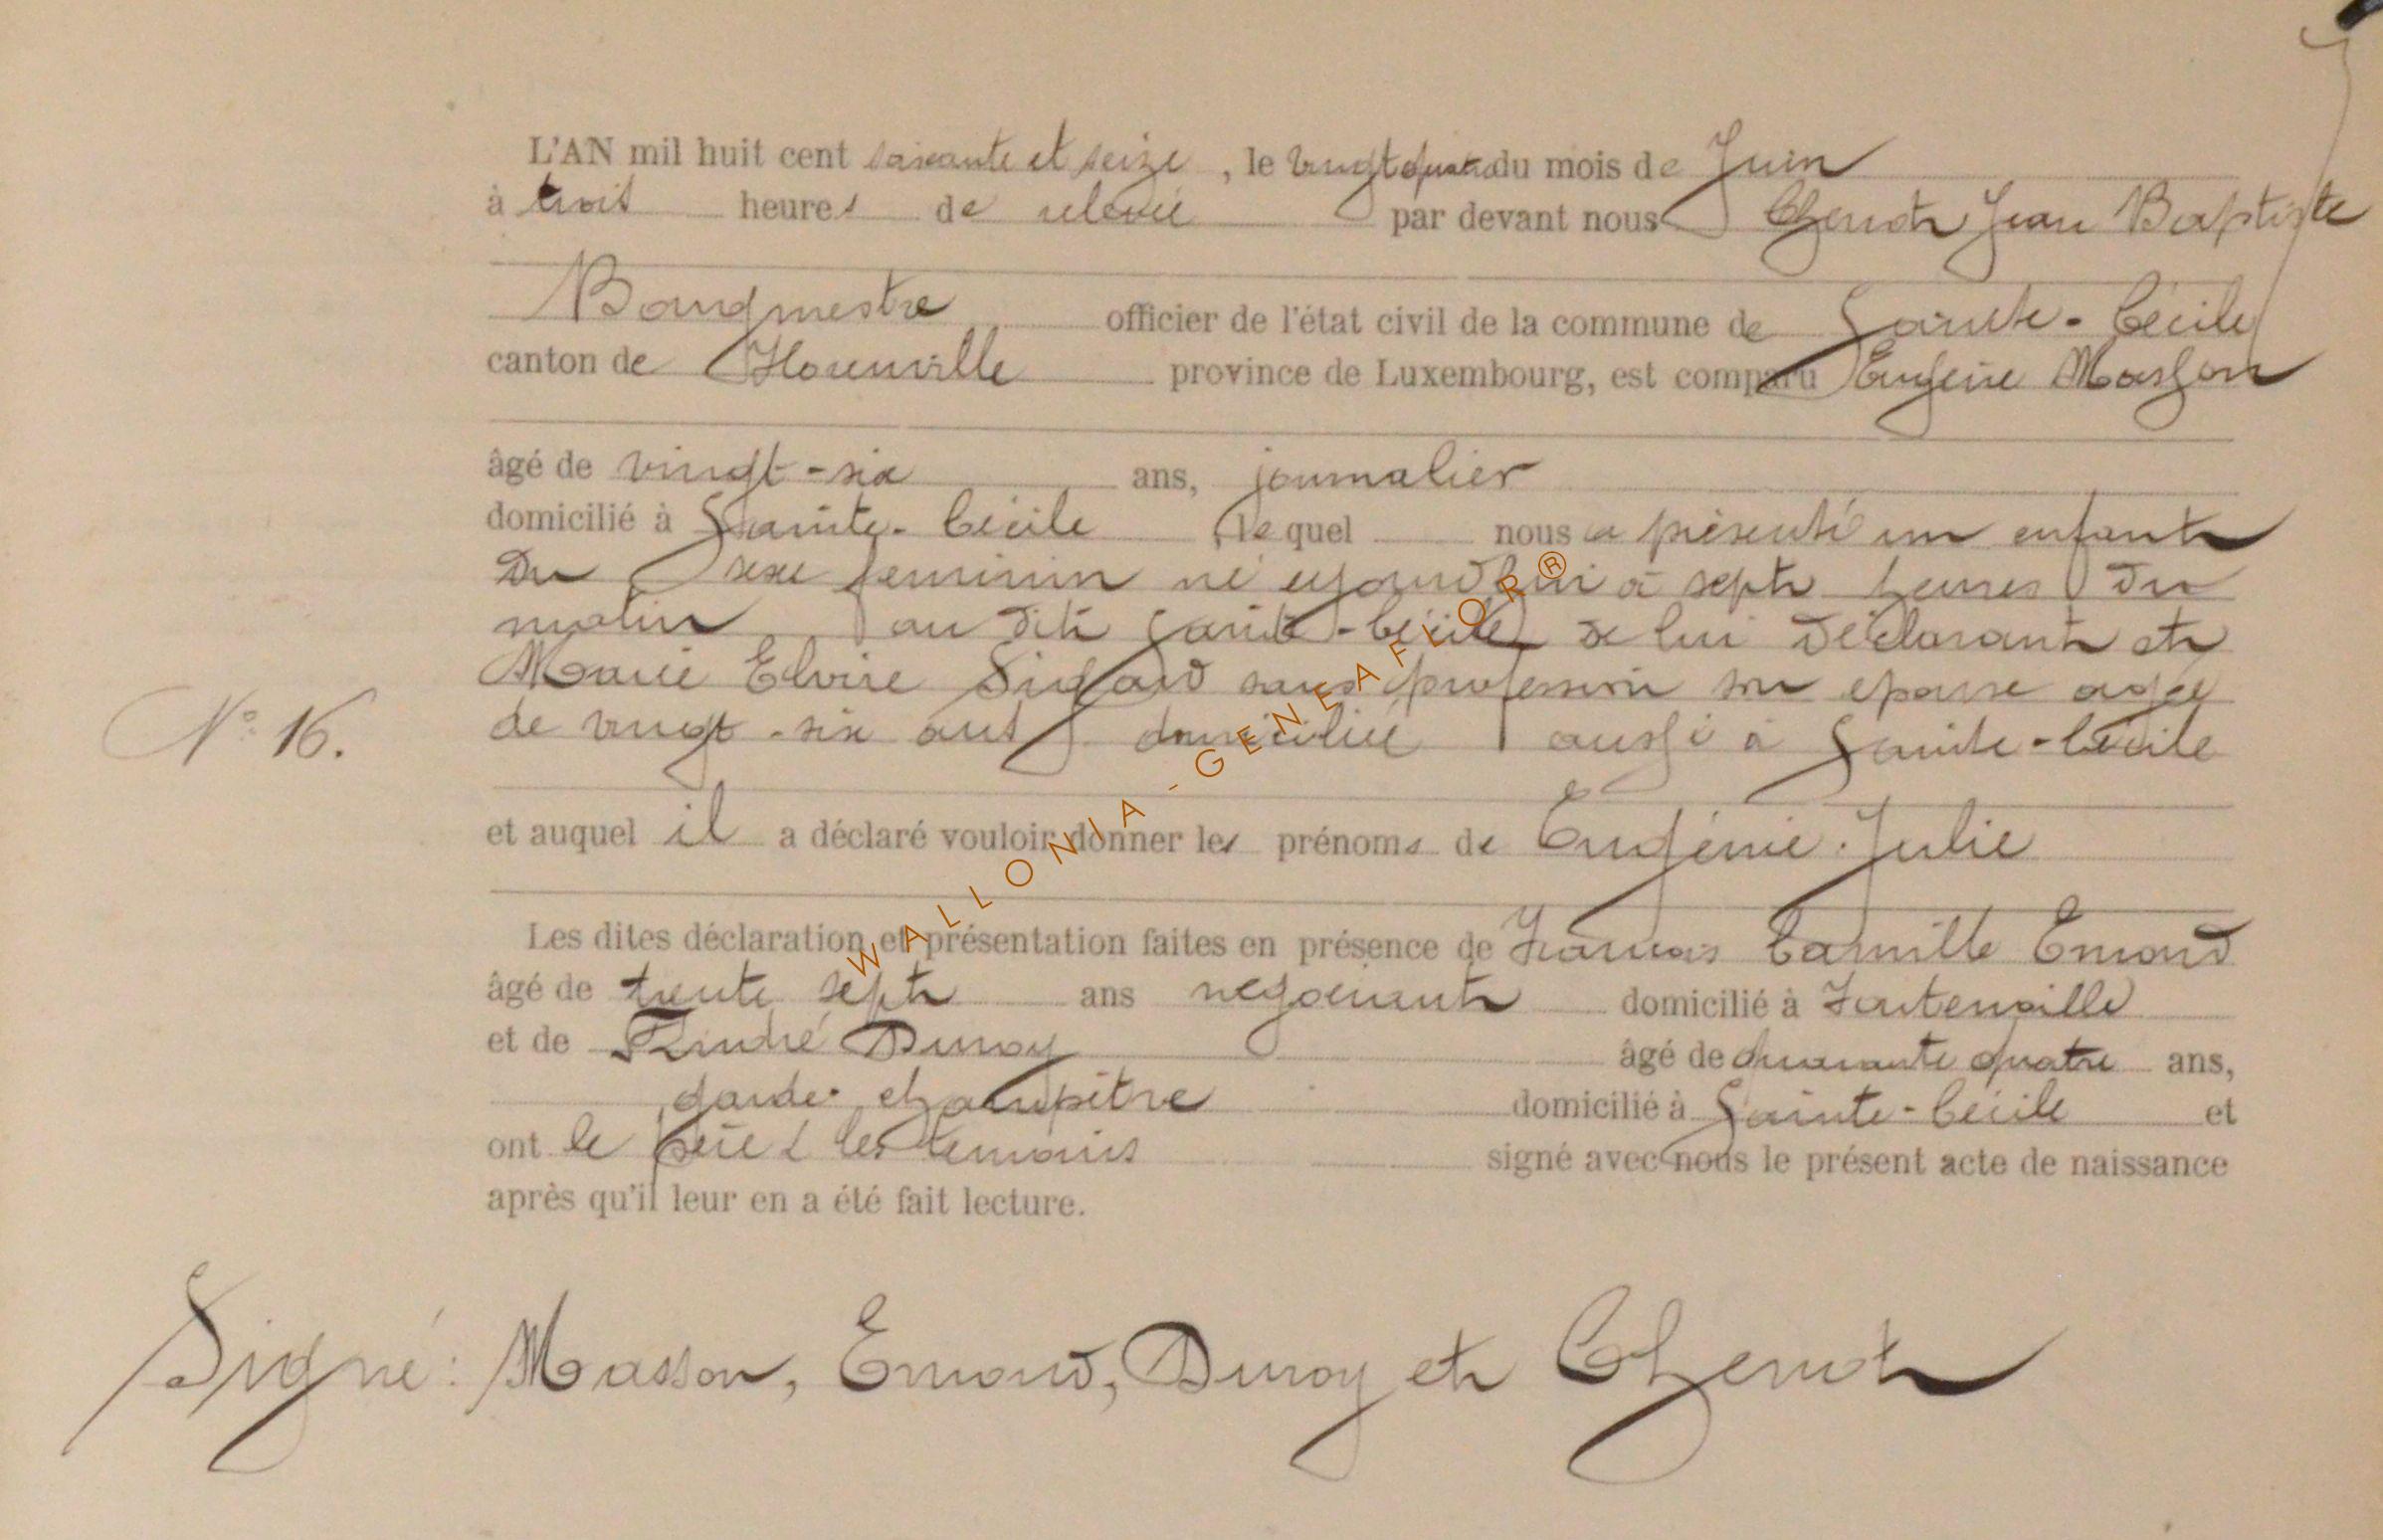 L'AN mil huit cent soixante et seize, le vingt quatre du mois de Juin
à trois heures de relevée par devant nous Chenot Jean Baptiste
Bourgmestre officier de l'état civil de la commune de Sainte-Cécile
canton de Florenville province de Luxembourg, est comparu Eugène Masson
âgé de vingt-six ans, journalier
domicilié à Sainte-Cécile, le quel nous a présenté un enfant
Du sexe feminin né aujourd'hui à sept heures du
matin au dit Sainte-Cécile de lui Déclarant et
Marie Elvire Sigard sans profession son epouse agée
N° 16. de vingt-six ans domiciliée aussi à Sainte-Cécile
et auquel il a déclaré vouloir donner les prénoms de Eugénie Julie
Les dites déclaration et présentation faites en présence de Francois Camille Emond
âgé de trente sept ans negociant domicilié à Fontenoille
et de André Duroy âgé de quarante quatre ans,
garde-champêtre domicilié à Sainte-Cécile et
ont le père & les temoins signé avec nous le présent acte de naissance
après qu'il leur en a été fait lecture.
Signé: Masson, Emond, Duroy et Chenot
WALLONIA - GENEAFLOR®